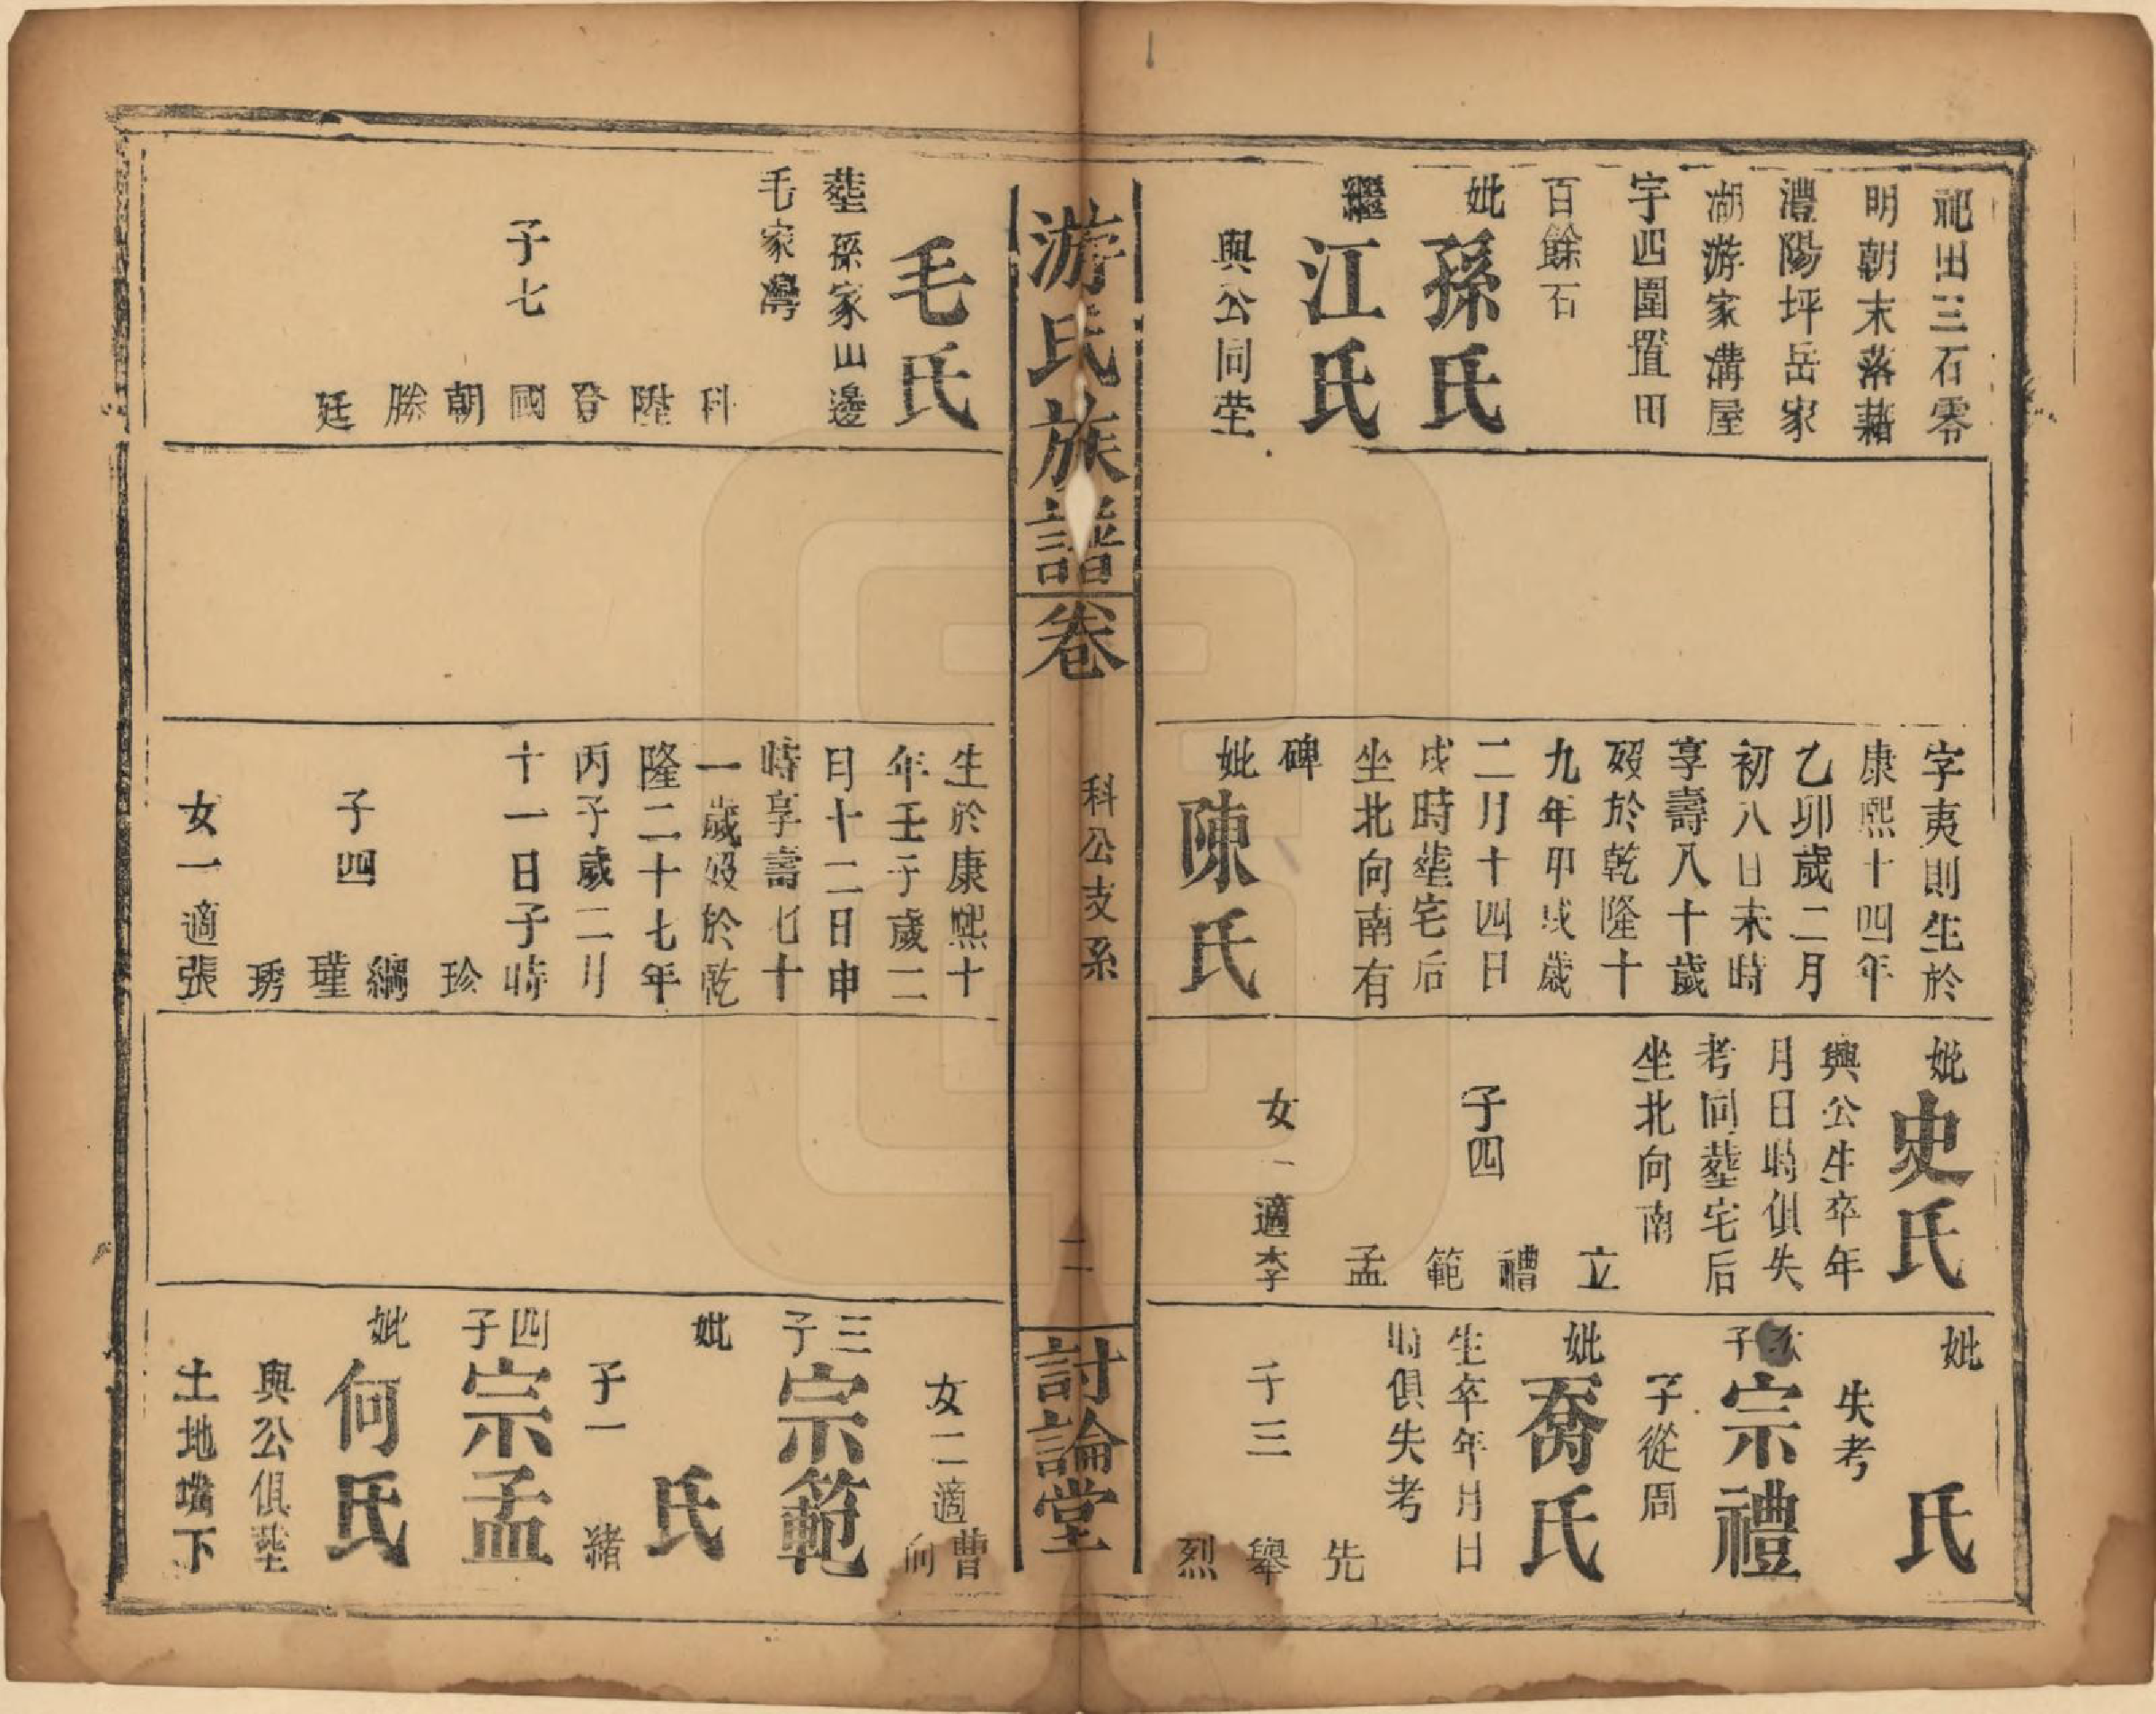 祀田三石零
明朝末落藉
澧陽坪岳家
湖游家溝屋
宇四圍置田
百餘石
妣孫氏
繼江氏
與公同塋
字夷則生於
康熙十四年
乙卯歲二月
初八日未時
享壽八十歲
歿於乾隆十
九年甲戌歲
二月十四日
戌時塟宅后
坐北向南有
碑
妣陳氏
妣史氏
與公生卒年
月日時俱失
考同塟宅后
坐北向南
子四
立
禮
範
孟
女一適李
妣 氏
失考
次子宗禮
字從周
妣喬氏
生卒年月日
時俱失考
子三
先
舉
烈
游氏族譜卷
科公支系
二
討論堂
毛氏
塟孫家山邊
毛家灣
子七
科
陞
登
國
朝
勝
廷
生於康熙十
年壬子歲二
日十二日申
時享壽七十
一歲歿於乾
隆二十七年
丙子歲二月
十一日子時
子四
珍
綱
瑾
琇
女一適張
女二適
曹
向
三子宗範
妣 氏
子一
緒
四子宗孟
妣何氏
與公俱塟
土地嘴下